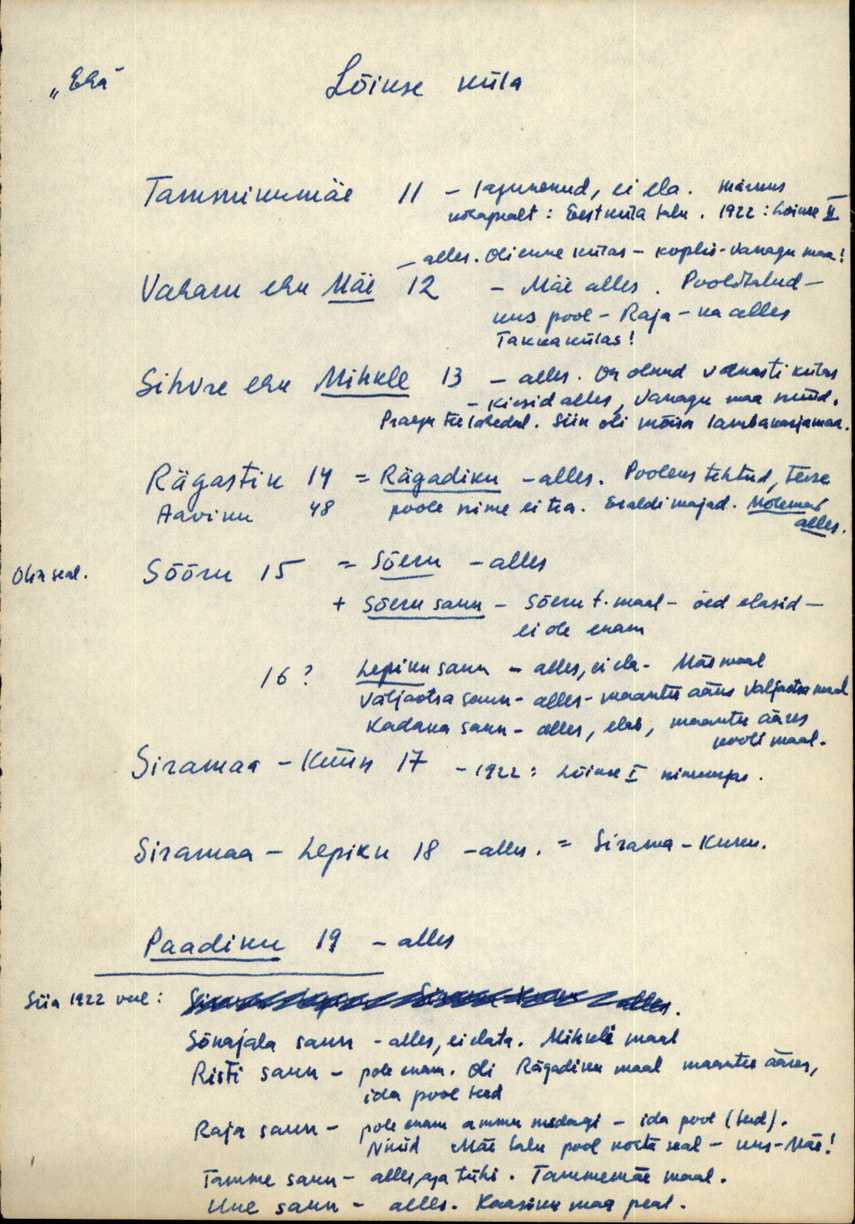 „Ehā” Lõikse küla
Tammikumäe 11 – lagunenud, ei ela.
: Eestküla talu. 1922: Lõikse II
– alles. Oli enne külas – koplis – Vanagu maa!
Vahasu ehk Mäe 12 – Mäe alles. Pooldtalud –
uus pool – Raja – ka alles
Takkakülas!
Sihvre ehk Mihkle 13 – alles. On olnud vanasti külas
– kivid alles, Vanagu maa nüüd.
Praegu tee lähedal. Siin oli mõisa lambakarjamaa.
Rägastik 14 = Rägadiku – alles. Pooleks tehtud, teise
Aaviku 48 poole nime ei tea. Eraldi majad. Mõlemad
alles.
Olin seal. Sõõru 15 = Sõeru – alles
+ Sõeru saun – Sõeru t. maal – õed elasid –
ei ole enam
16? Lepiku saun – alles, ei ela – Mäe maal
Väljaotsa saun – alles – maantee ääres Väljaotsa maal
Kadaka saun – alles, elab, maantee ääres
kooli maal.
Siramaa – Küün 17 – 1922: Lõikse I nimega.
Siramaa – Lepiku 18 – alles. = Sirama – Kuusu.
Paadiku 19 – alles
Siia 1922 veel: alles.
Sõnajala saun – alles, ei elata. Mihkli maal
Risti saun – pole enam. Oli Rägadiku maal maantee ääres,
ida pool teed
Raja saun – pole enam ammu midagi – ida pool (teed).
Nüüd Mäe talu pool kohta seal – Uus-Mäe!
Tamme saun – alles, aga tühi. Tammemäe maal.
Uue saun – alles. Kaasiku maa peal.